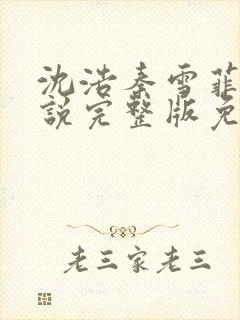 沈浩秦雪菲
说完整版免
老三家老三